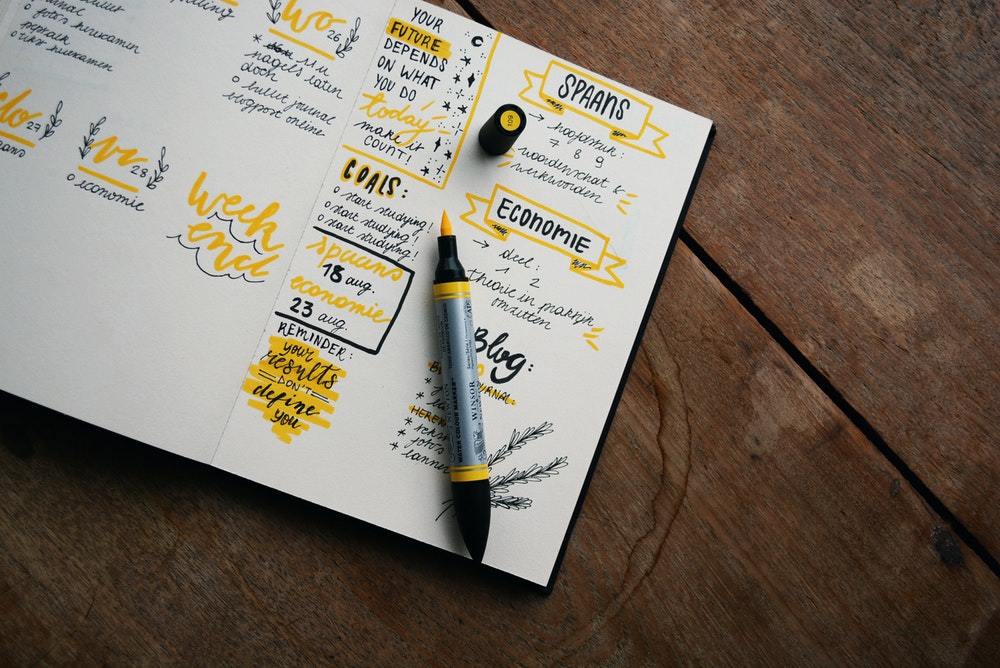 herexamen
foto's herexamen
wo 26
* 11 u
nagels laten
doen
o bullet journal
blogpost online
do 27
vr 28
o economie
week
end
YOUR
FUTURE
DEPENDS
ON WHAT
YOU DO
today
make it
COUNT!
GOALS:
o start studying!
o start studying!
o start studying!
spaans
18 aug.
economie
23 aug.
REMINDER:
your
results
DON'T
define
you
SPAANS
→ hoofdstuk:
7 8 9
woordenschat &
werkwoorden
ECONOMIE
→ deel:
1 2
theorie in praktijk
omzetten
Blog:
JOURNAL
HEREX
*
* foto's
* banner
WATER COLOUR MARKER
WINSOR
109